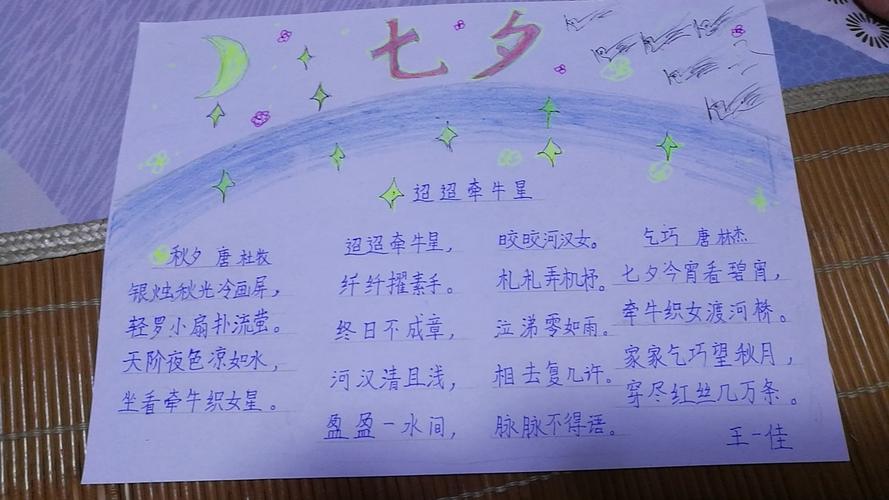 七夕
迢迢牵牛星
秋夕 唐 杜牧
银烛秋光冷画屏，
轻罗小扇扑流萤。
天阶夜色凉如水，
坐看牵牛织女星。
迢迢牵牛星，皎皎河汉女。
纤纤擢素手。札札弄机杼。
终日不成章，泣涕零如雨。
河汉清且浅，相去复几许。
盈盈一水间，脉脉不得语。
乞巧 唐 林杰
七夕今宵看碧宵，
牵牛织女渡河桥。
家家乞巧望秋月，
穿尽红丝几万条。
王一佳